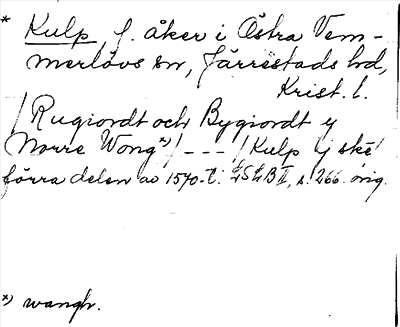 * Kulp, f. åker i Östra Vem-
merlövs sn, Järrestads hd,
Krist. l.
/Rugiordt och Bygiordt y
Norre Wong*)/ - - - /Kulp y skë/
förra delen av 1570-t. LSLB II, s. 266. orig.
*) wangh.